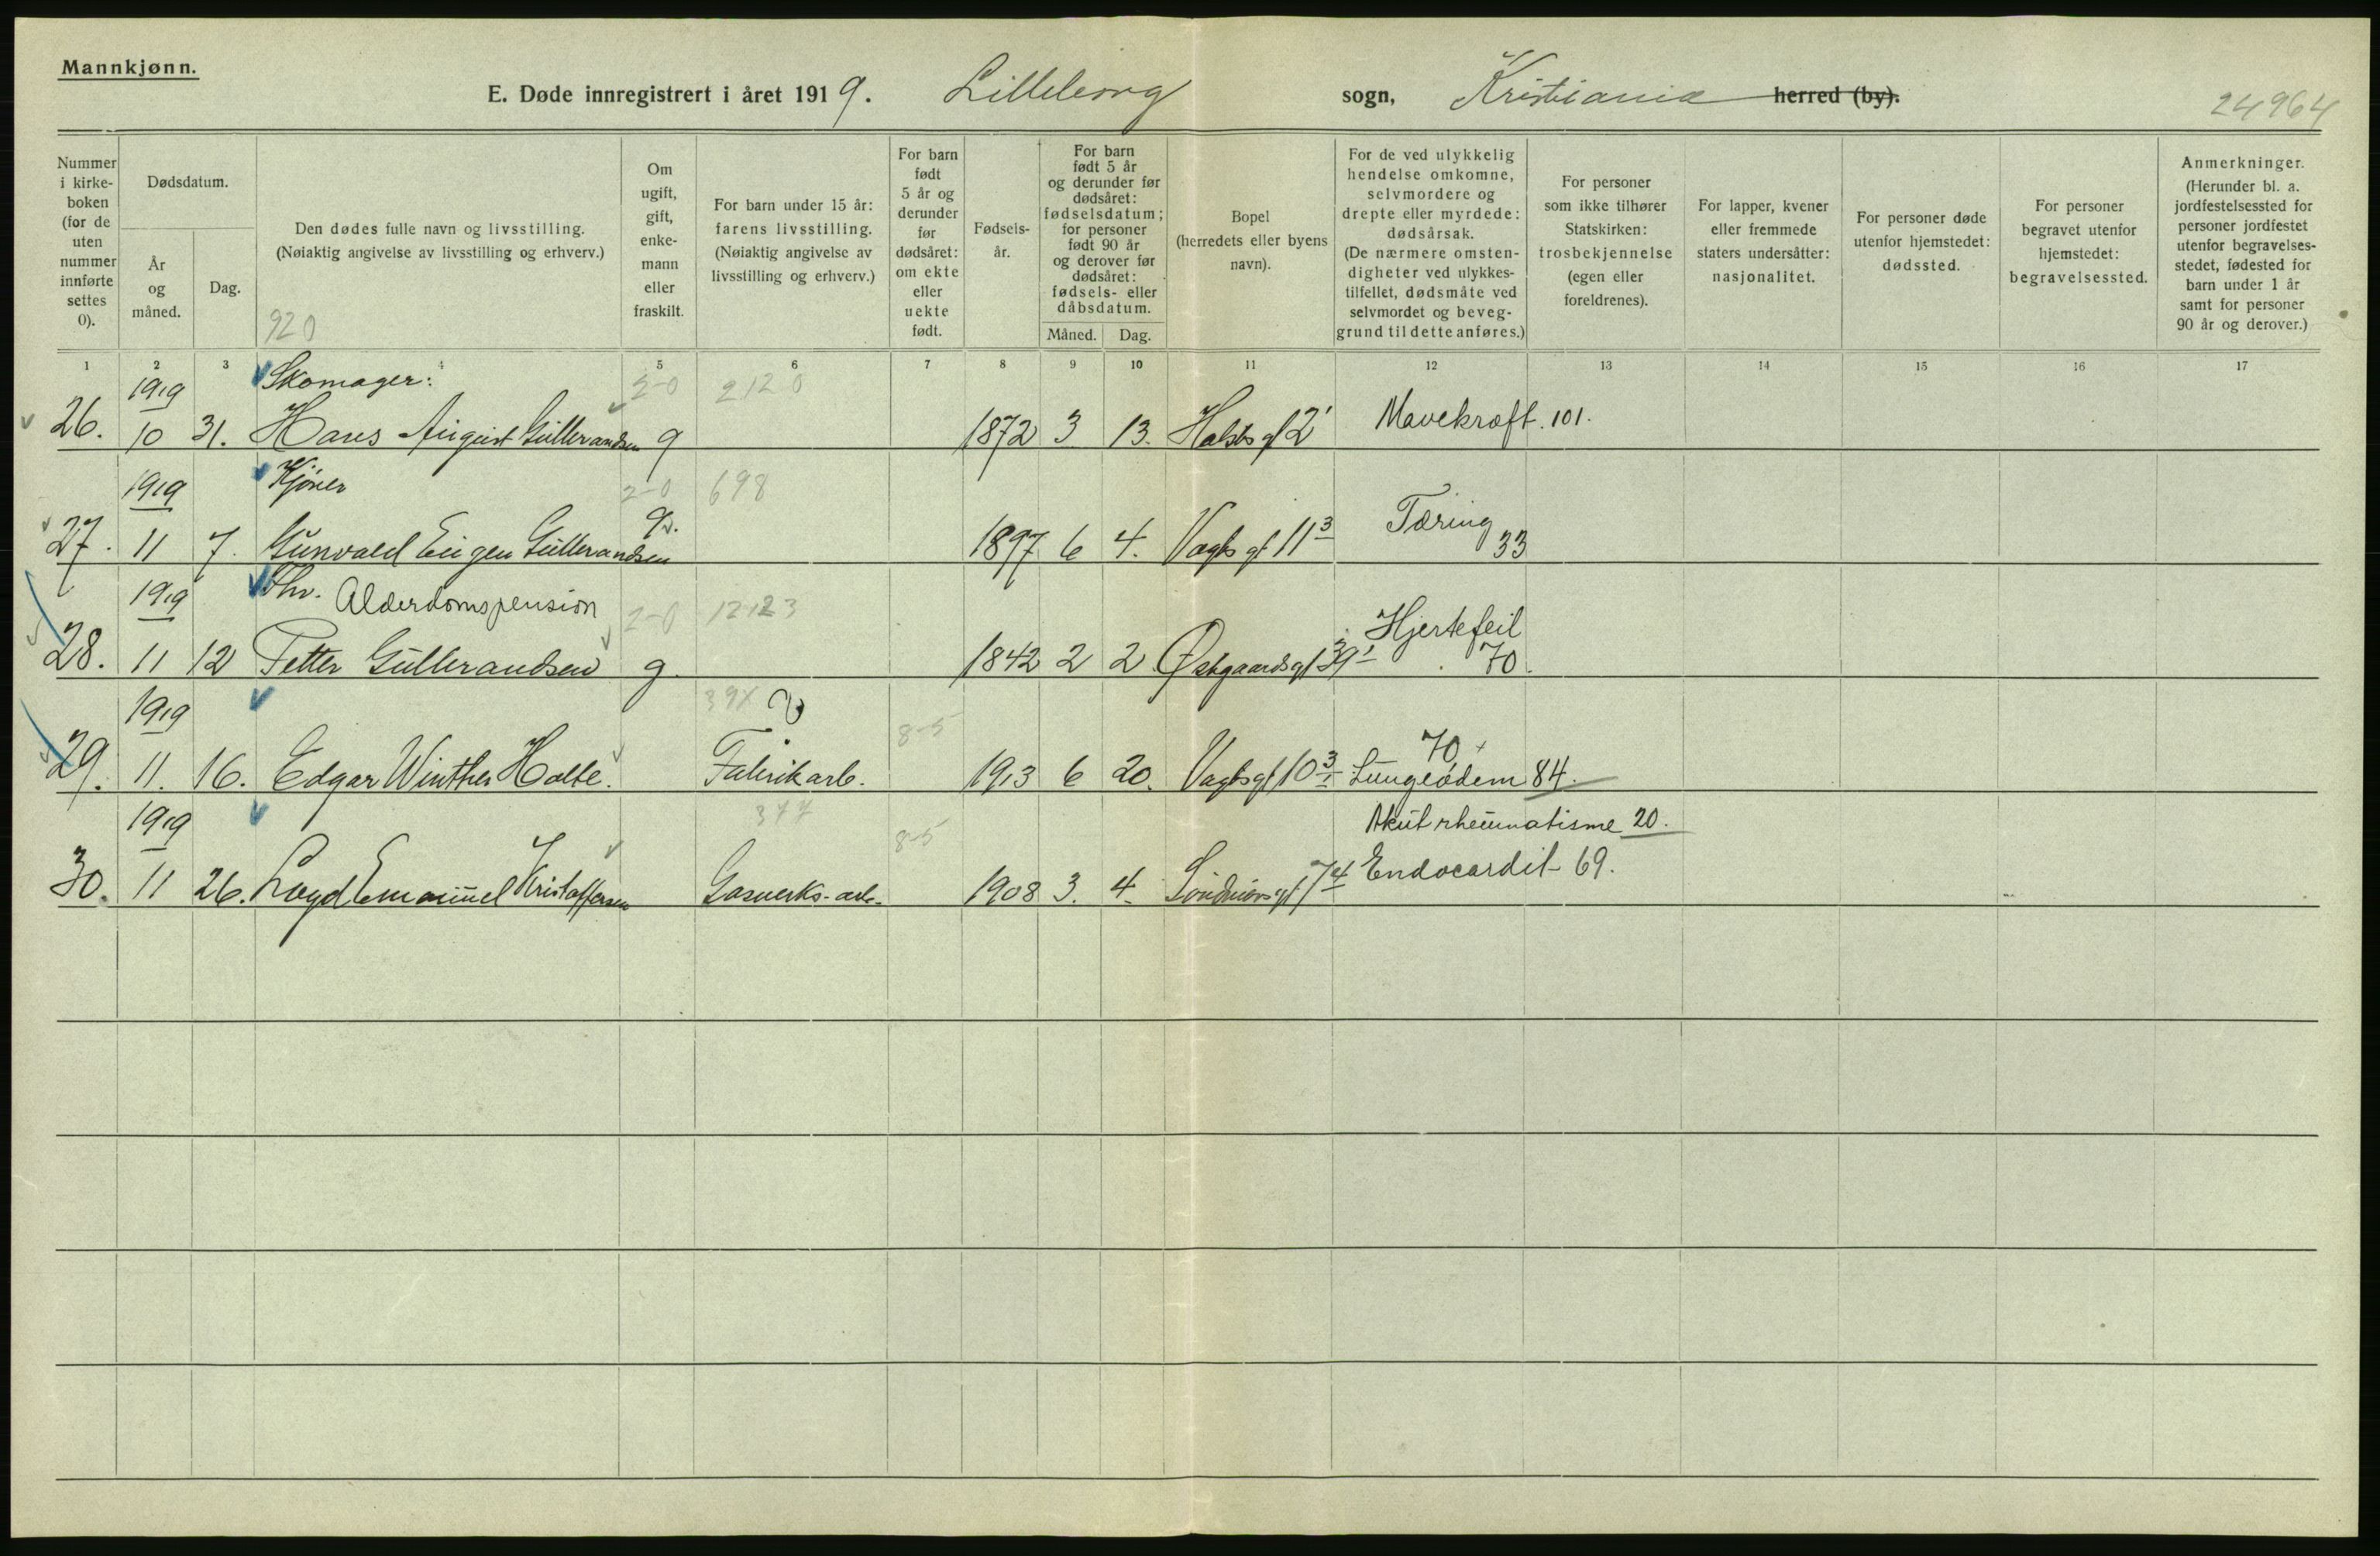 Mannkjønn.
E. Døde innregistrert i året 1919. Lilleborg sogn, Kristiania herred (by).
24964
Nummer i kirke-boken (for de uten nummer innførte settes 0).
Dødsdatum.
År og måned.
Dag.
Den dødes fulle navn og livsstilling.
(Nøiaktig angivelse av livsstilling og erhverv.)
920
Om ugift, gift, enke-mann eller fraskilt.
For barn under 15 år: farens livsstilling.
(Nøiaktig angivelse av livsstilling og erhverv.)
For barn født 5 år og derunder før dødsåret: om ekte eller uekte født.
Fødsels-år.
For barn født 5 år og derunder før dødsåret: fødselsdatum; for personer født 90 år og derover før dødsåret: fødsels- eller dåbsdatum.
Måned.
Dag.
Bopel
(herredets eller byens navn).
For de ved ulykkelig hendelse omkomne, selvmordere og drepte eller myrdede: dødsårsak.
(De nærmere omsten-digheter ved ulykkes-tilfellet, dødsmåte ved selvmordet og beveg-grund til dette anføres.)
For personer som ikke tilhører Statskirken: trosbekjennelse (egen eller foreldrenes).
For lapper, kvener eller fremmede staters undersåtter: nasjonalitet.
For personer døde utenfor hjemstedet: dødssted.
For personer begravet utenfor hjemstedet: begravelsessted.
Anmerkninger.
(Herunder bl. a. jordfestelsessted for personer jordfestet utenfor begravelses-stedet, fødested for barn under 1 år samt for personer 90 år og derover.)
1 2 3 4 5 6 7 8 9 10 11 12 13 14 15 16 17
1919 Skomager: 2-0 2120
26. 10 31. Hans August Gullerandsen g 1872 3 13. Halsts gt 2 Mavekræft. 101.
1919 Kjører 2-0 698
27. 11 7. Gunvald Eugen Gullerandsen 1897 6 4. Vogts gt 11 3 Tæring 33
1919 Fhv. Alderdomspension 2-0 12123
28. 11 12 Petter Gullerandsen g. 1842 2 2 Østgaards gt 39 Hjertefeil 70.
1919 39x 8-5
29. 11. 16. Edgar Winther Holte. Fabrikarb. 1913 6 20. Vogts gt 10 3 70 + Lungeødem 84.
1919 377 8-5 Akut rheumatisme 20.
30. 11 26. Loyd Emanuel Kristoffersen Gasverks-arb. 1908 3. 4. Søndmørs gt 7 4 Endocardit 69.